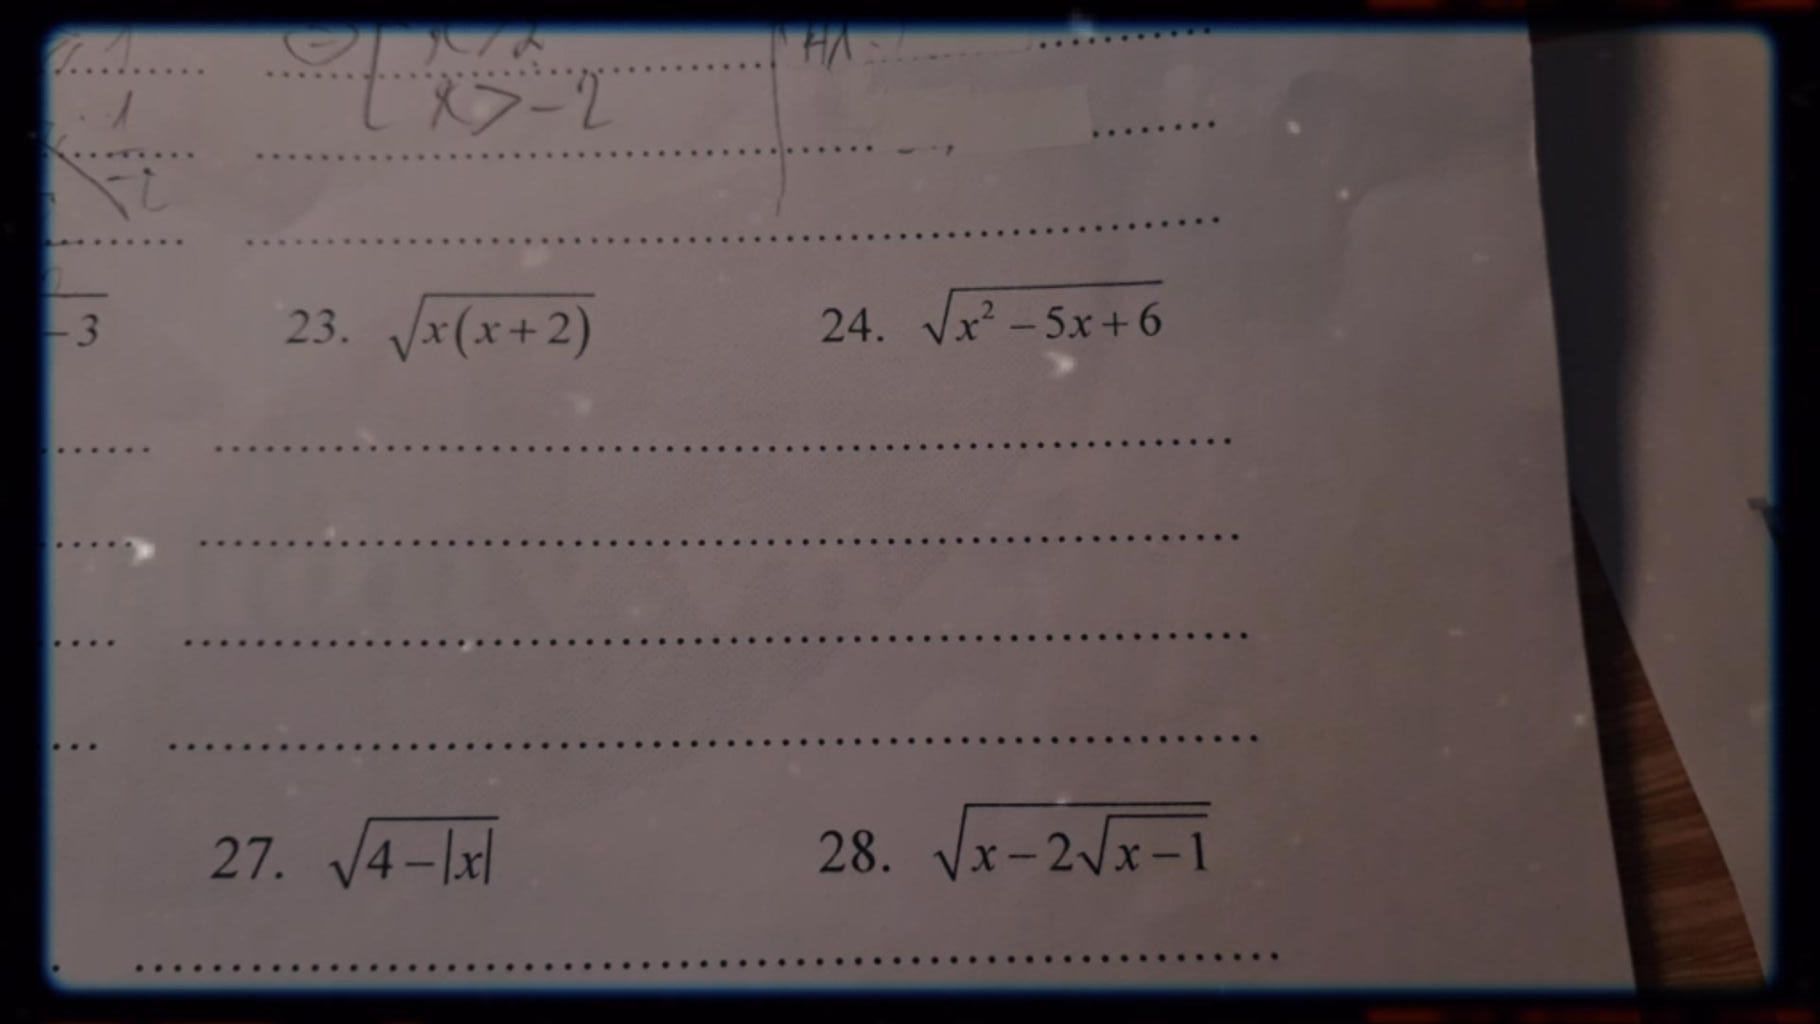 x > 2
x > -2
-3
23. √(x(x+2))
24. √(x² – 5x + 6)
27. √(4 – |x|)
28. √(x – 2√(x – 1))